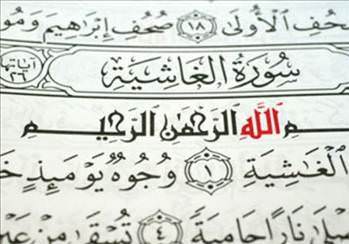 صُحُفِ ٱلْأُولَىٰ ١٨ صُحُفِ إِبْرَٰهِيمَ وَمُو
سُورَةُ الْغَاشِيَةِ آيَاتُهَا ٢٦
ـمِ ٱللَّهِ ٱلرَّحْمَٰنِ ٱلرَّحِيمِ
ٱلْغَٰشِيَةِ ١ وُجُوهٌ يَوْمَئِذٍ خَـ
ـلَىٰ نَارًا حَامِيَةً ٤ تُسْقَىٰ مِنْ عَيْـ